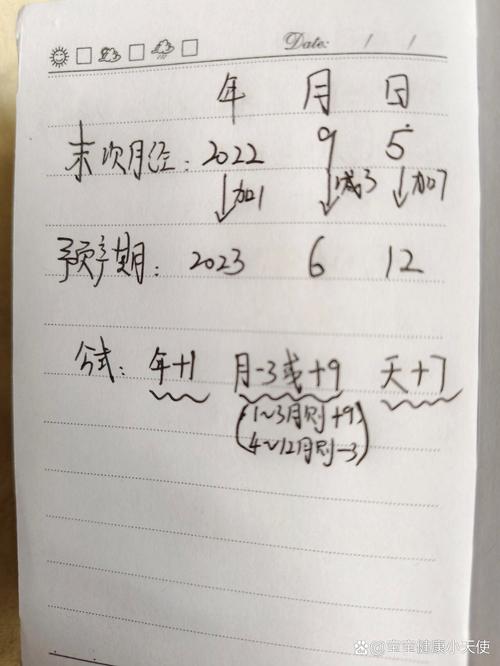 Date: / /
年 月 日
末次月经: 2022 9 5
加1 减3 加7
预产期: 2023 6 12
公式: 年+1 月-3或+9 天+7
(1~3月则+9
4~12月则-3)
宝宝健康小天使